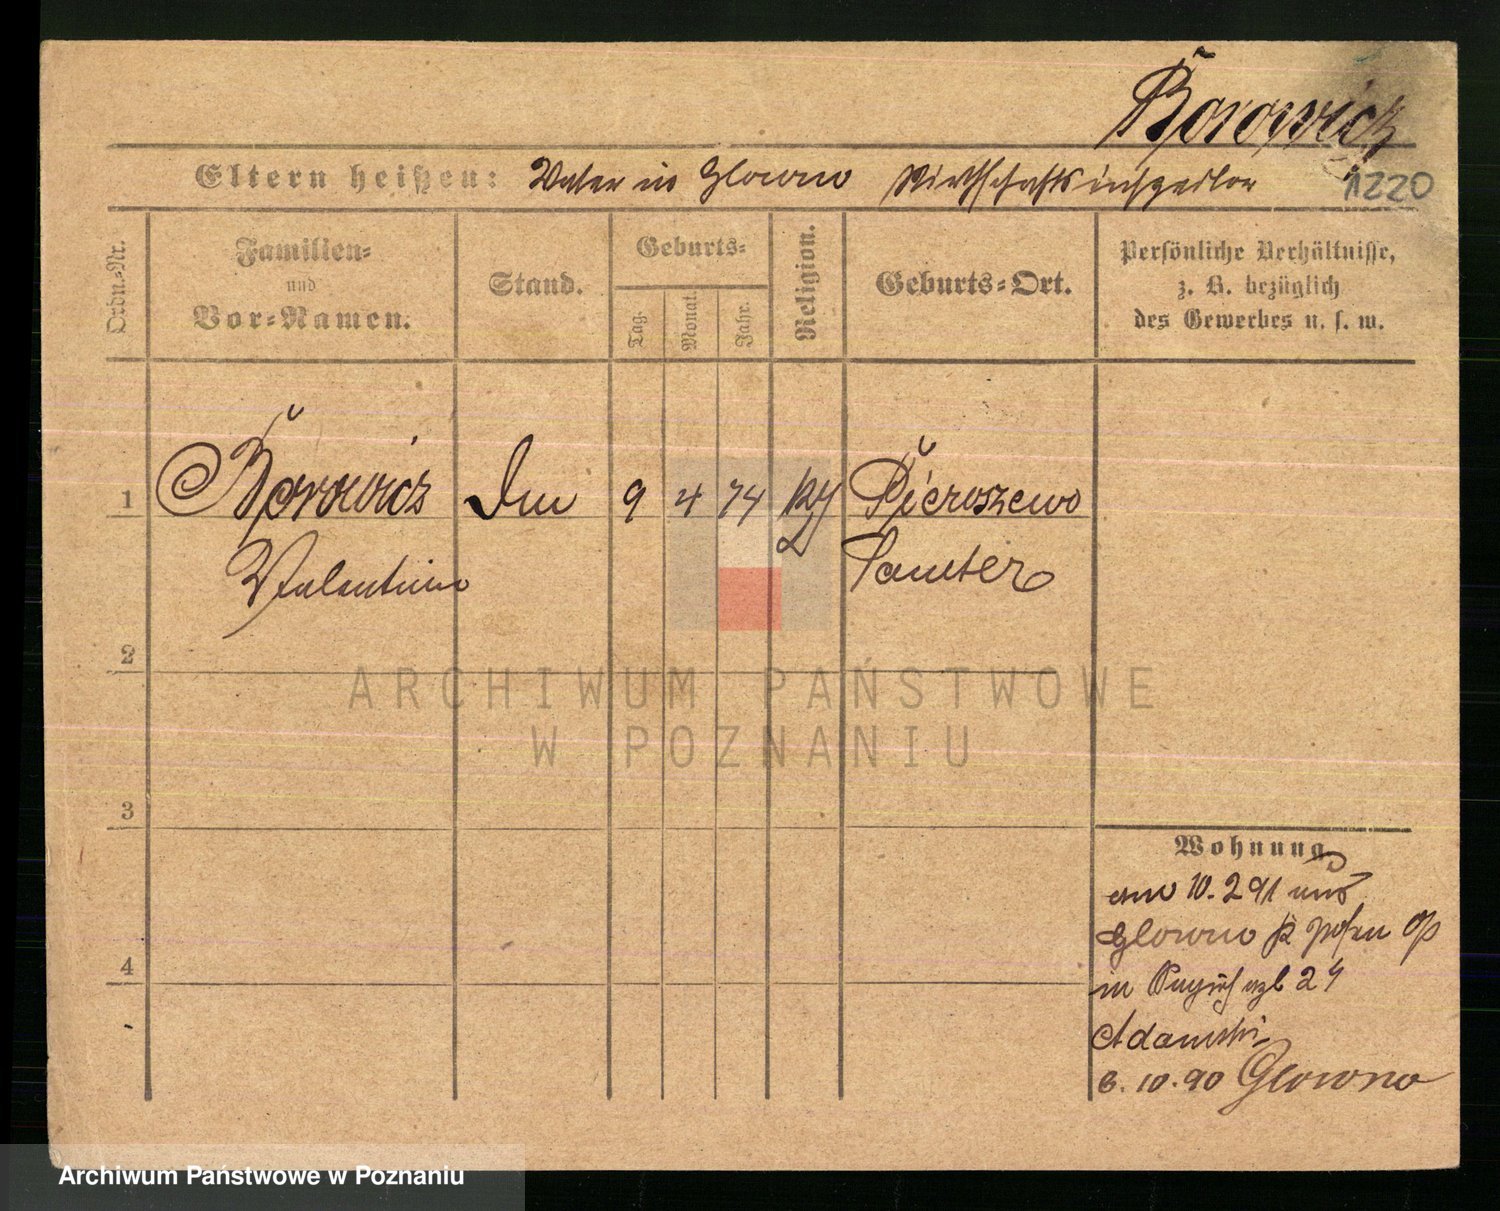 Borowicz
Eltern heißen: Vater in Glowno Wirthschaftsinspector 1220
Ordn.-Nr.
Familien-
und
Vor-Namen.
Stand.
Geburts-
Tag.
Monat.
Jahr.
Religion.
Geburts-Ort.
Persönliche Verhältnisse,
z. B. bezüglich
des Gewerbes u. s. w.
1 Borowicz 9 4 74 Pieroszewo
Valentin Samter
2
ARCHIWUM PAŃSTWOWE
W POZNANIU
3
Wohnung
10. 2 91
Glowno Posen
in 24
4
Adamski
6. 10. 90 Glowno
Archiwum Państwowe w Poznaniu